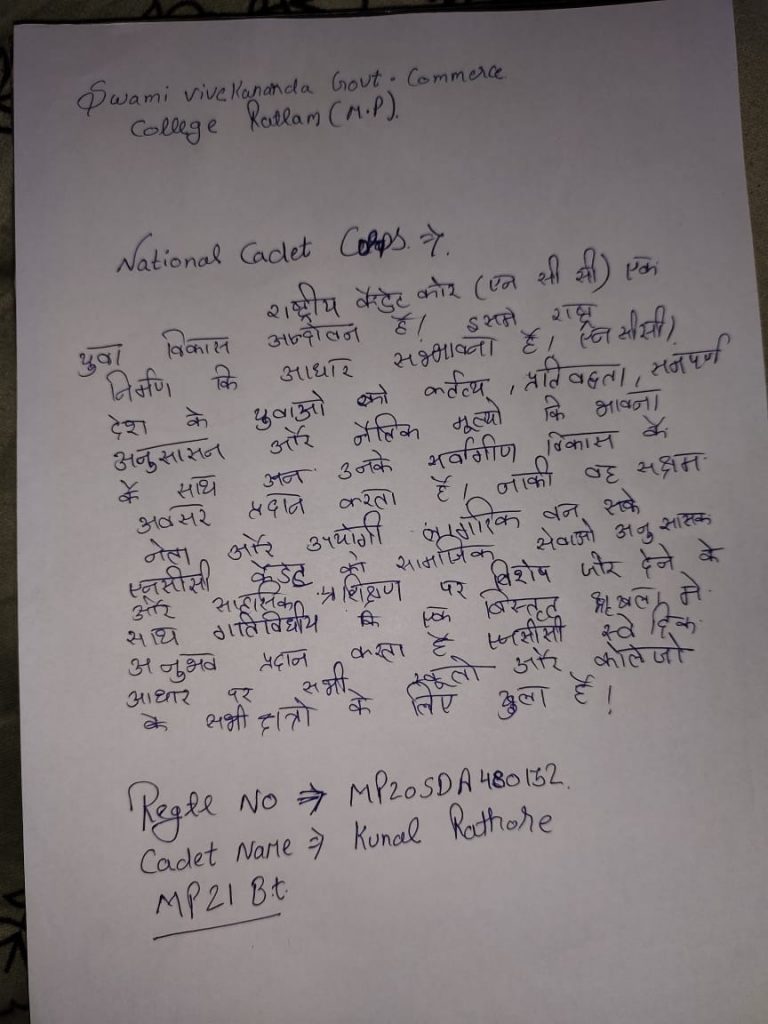 Swami Vivekananda Govt. Commerce
College Ratlam (M.P).
National Cadet Corps. ⇒.
राष्ट्रीय कैडेट कोर (एन सी सी) एक
युवा विकास अन्दोलन है। इसमे राष्ट्र
निर्मण कि आधार सम्भावना है, एनसीसी)
देश के युवाओ को कर्तव्य, प्रतिवद्धता, समपर्ण
अनुसासन और नैतिक मूल्यो कि भावना
के साथ उनके सर्वागीण विकास के
अवसर प्रदान करता है। वह सक्षम
नेता और उपयोगी नागरिक बन सके
एनसीसी कैडेट को सामाजिक सेवाओ अनुसासक
और साहसिक प्रशिक्षण पर विशेष जोर देने के
साथ गतिविधीय कि एक विस्तृत श्रृखला मे
अनुभव प्रदान करता है एनसीसी स्वेदिक
आधार पर सभी स्कूलो और कोलेजो
के सभी छात्रो के लिए खुला है।
No ⇒ MP20SDA480152.
Cadet Name ⇒ Kunal Rathore
MP21 B.t.